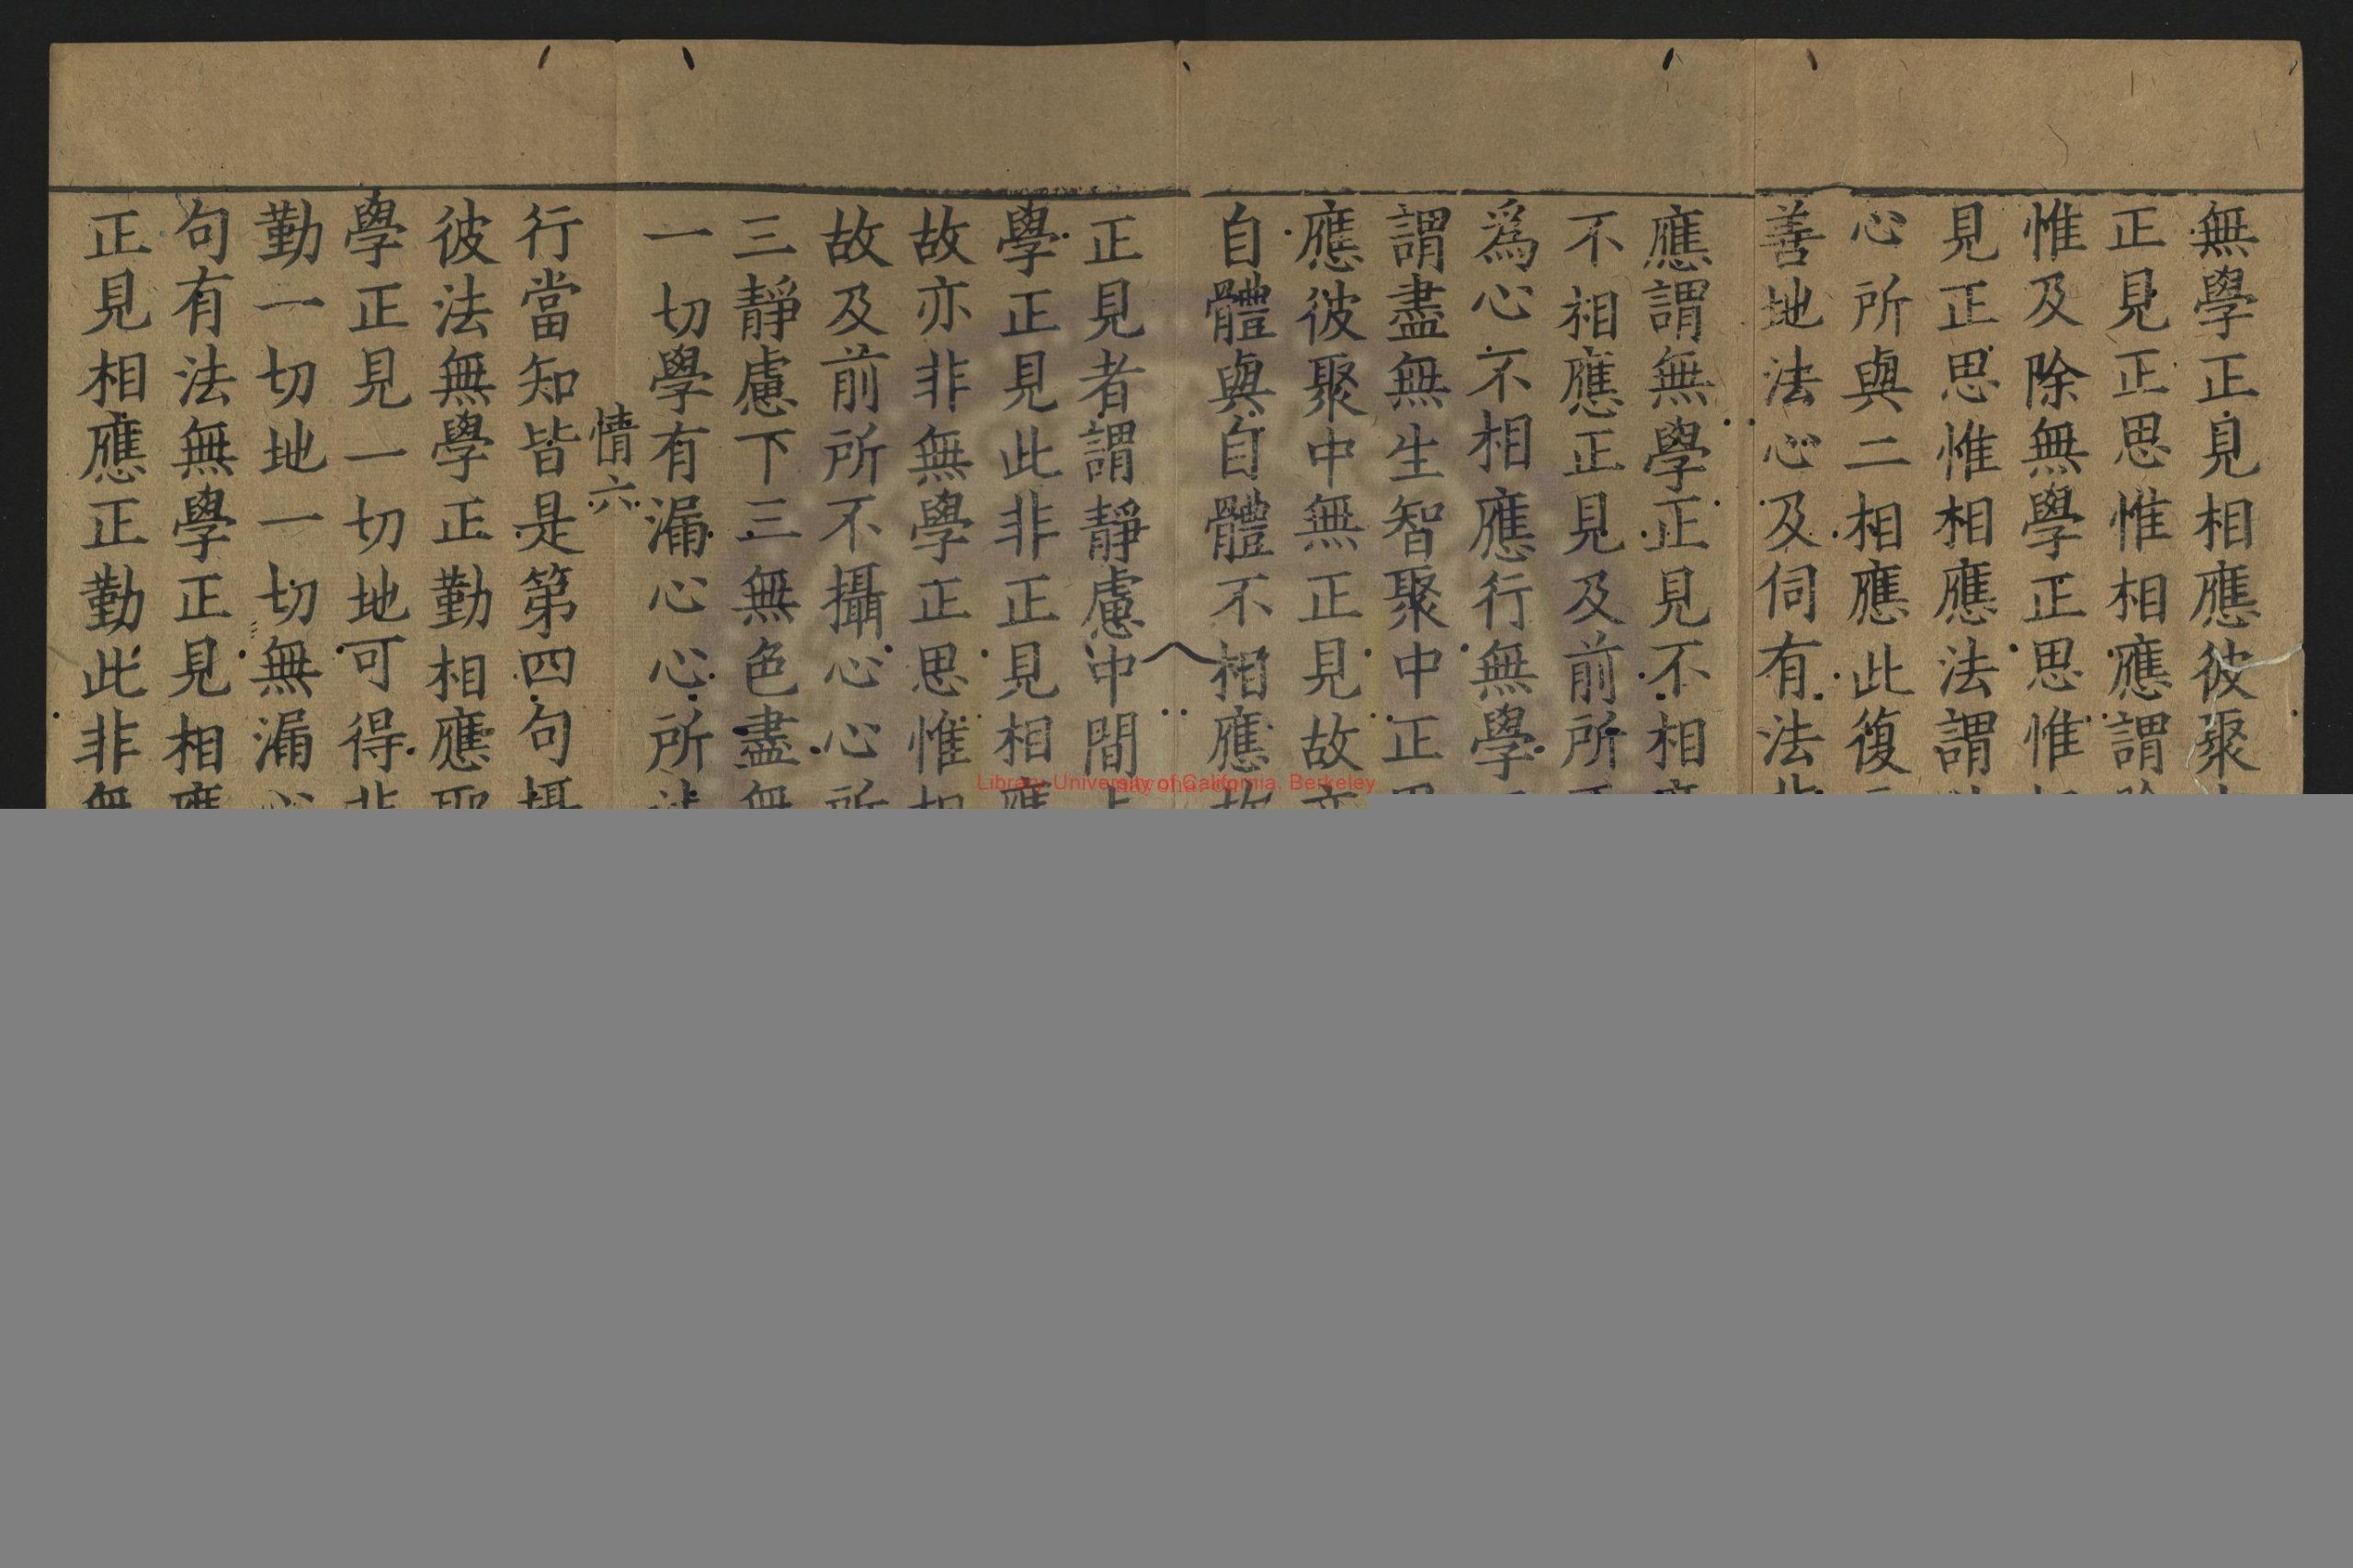 無學正見相應彼聚
正見正思惟相應謂
惟及除無學正思惟
見正思惟相應法謂
心所與二相應此復
善地法心及伺有法
應謂無學正見不相
不相應正見及前所
爲心不相應行無學
謂盡無生智聚中正
應彼聚中無正見故
自體與自體不相應
正見者謂靜慮中間
學正見此非正見相
故亦非無學正思惟
故及前所不攝心心所
三靜慮下三無色盡無
一切學有漏心心所
情六
行當知皆是第四句
彼法無學正勤相應
學正見一切地可得非
勤一切地一切無漏
句有法無學正見相
正見相應正勤此非無
Library, University of California, Berkeley